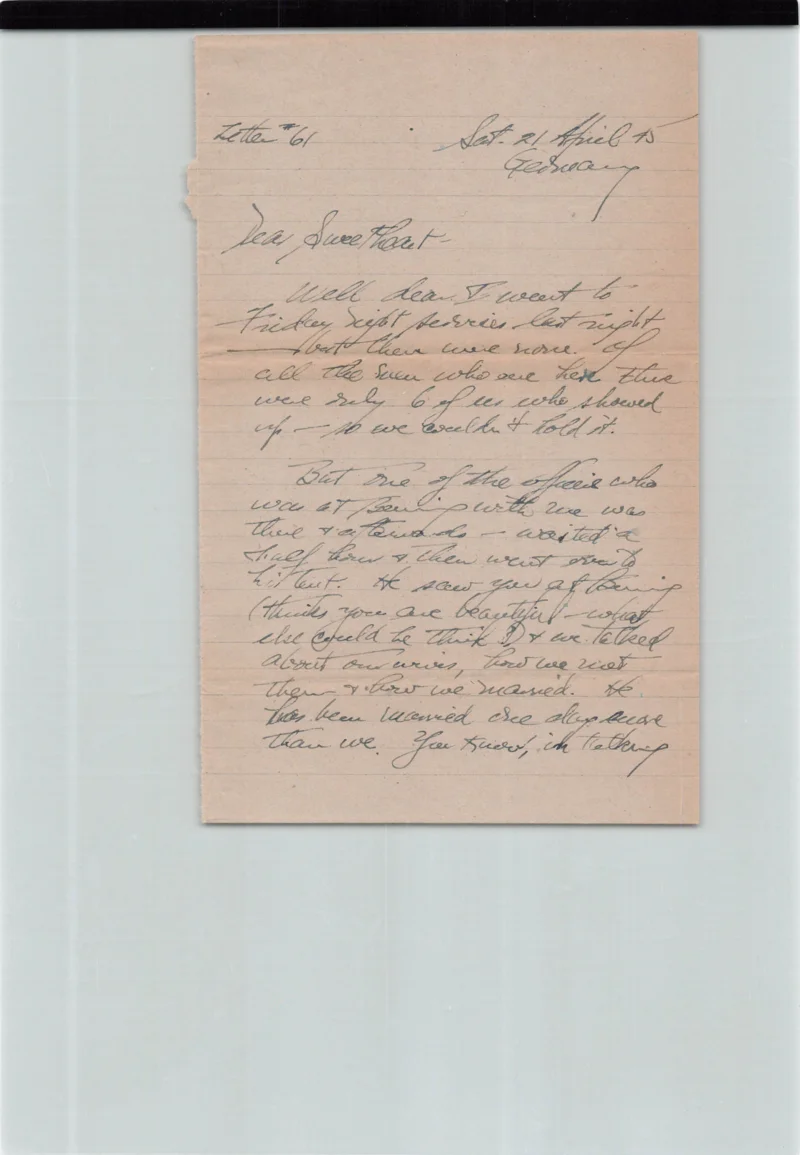 Letter #61
Sat. 21 April 45
Germany
Dear Sweetheart-
Well dear I went to
Friday night services last night
— but there were none. Of
all the men who are here there
were only 6 of us who showed
up — so we couldn't hold it.
But one of the officers who
was at Benning with me was
there & afterwards — waited a
half hour & then went over to
his tent. He saw you at Benning
(thinks you are beautiful - what
else could he think?) & we talked
about our wives, how we met
them & how we married. He
has been married one day more
than we. You know, in talking